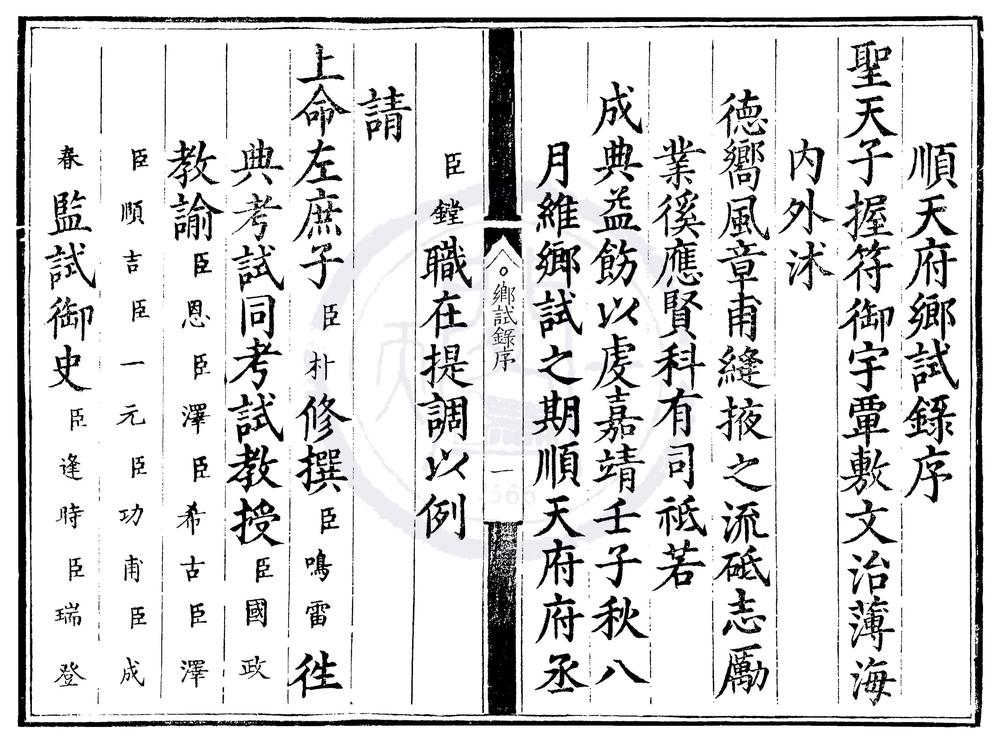 順天府鄉試錄序
聖天子握符御宇覃敷文治薄海
内外沐
德嚮風章甫縫掖之流砥志厲
業徯應賢科有司祗若
成典益飭以虔嘉靖壬子秋八
月維鄉試之期順天府府丞
鄉試錄序
一
臣鏜職在提調以例
請
上命左庶子臣朴修撰臣鳴雷徃
典考試同考試教授臣國政
教諭臣恩臣澤臣希古臣澤
臣順吉臣一元臣功甫臣成
春監試御史臣逢時臣瑞登